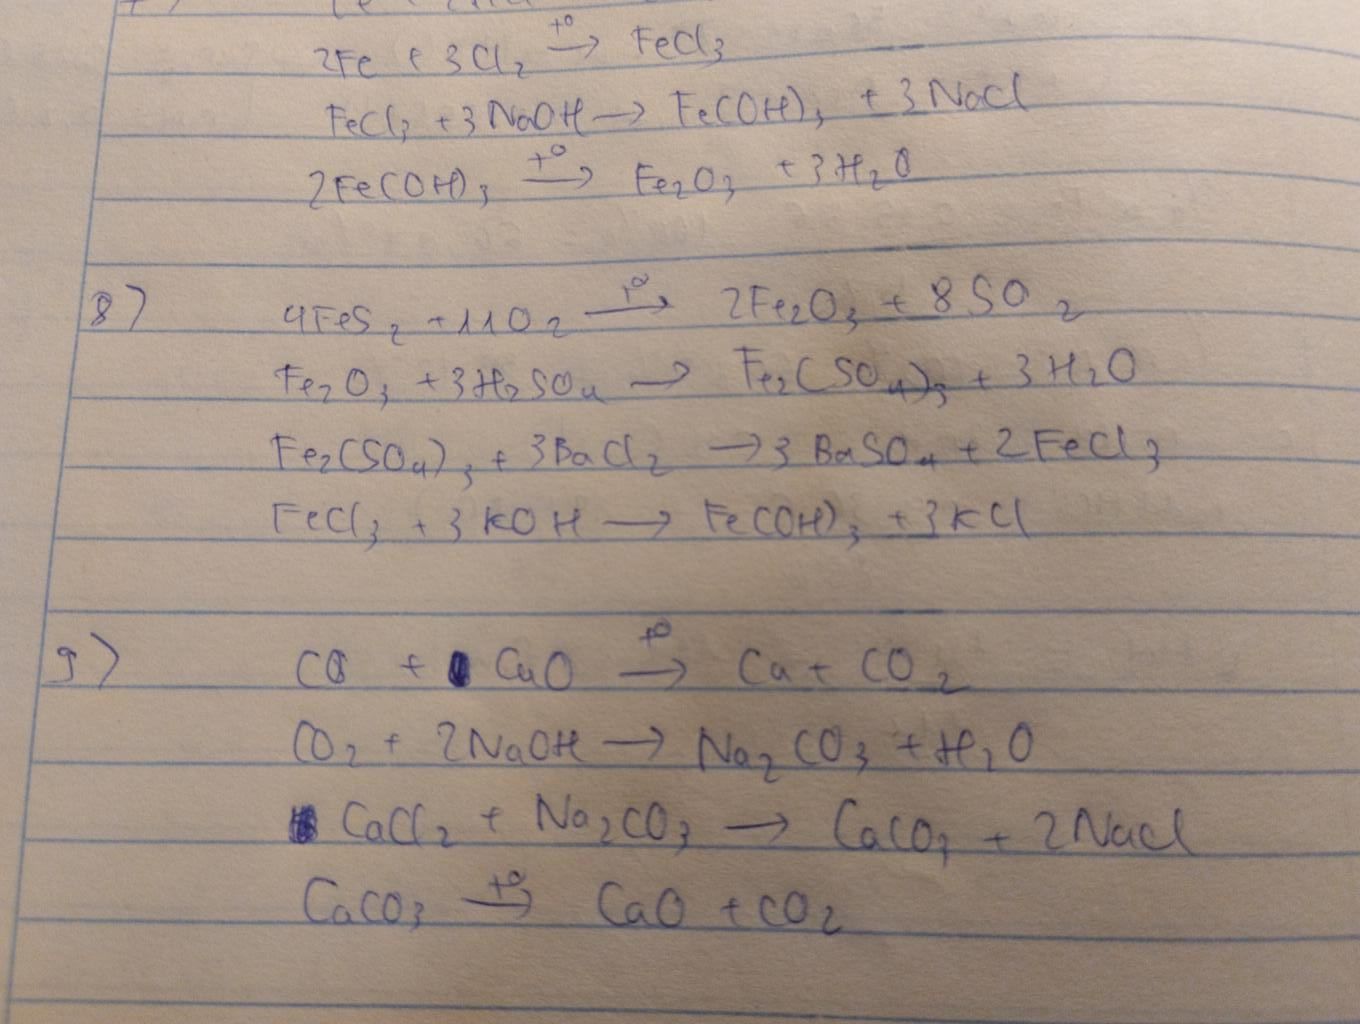 2Fe + 3Cl₂ →(t⁰) FeCl₃
FeCl₃ + 3NaOH → Fe(OH)₃ + 3NaCl
2Fe(OH)₃ →(t⁰) Fe₂O₃ + 3H₂O
8) 4FeS₂ + 11O₂ →(t⁰) 2Fe₂O₃ + 8SO₂
Fe₂O₃ + 3H₂SO₄ → Fe₂(SO₄)₃ + 3H₂O
Fe₂(SO₄)₃ + 3BaCl₂ → 3BaSO₄ + 2FeCl₃
FeCl₃ + 3KOH → Fe(OH)₃ + 3KCl
9) CO + CuO →(t⁰) Cu + CO₂
CO₂ + 2NaOH → Na₂CO₃ + H₂O
CaCl₂ + Na₂CO₃ → CaCO₃ + 2NaCl
CaCO₃ →(t⁰) CaO + CO₂